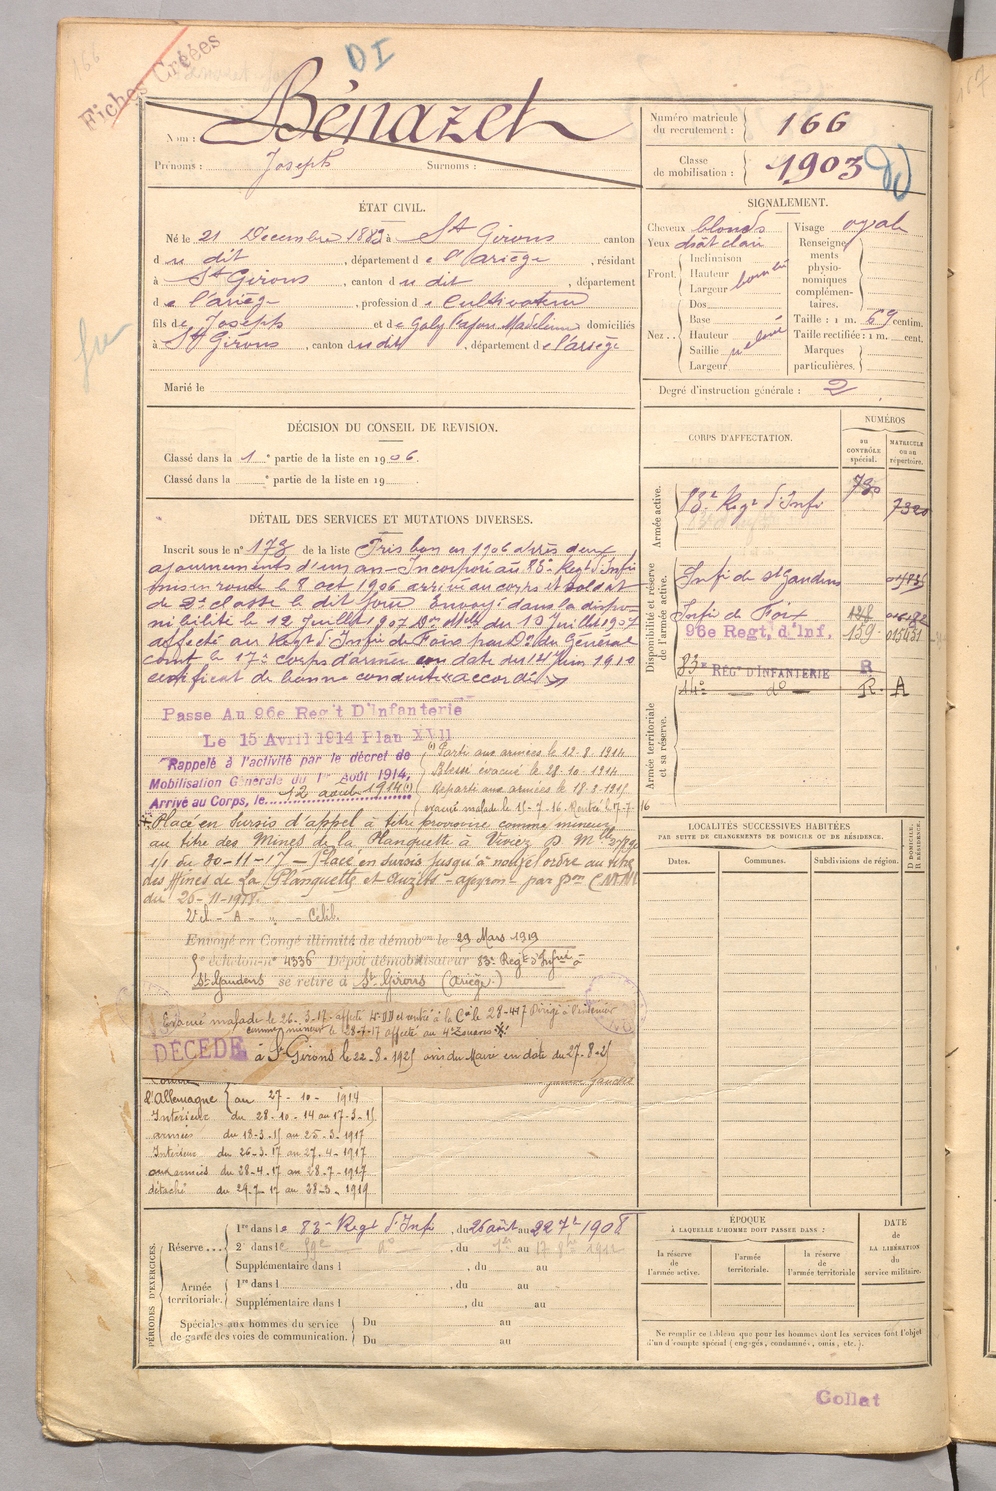 166
Fiches Créées
DI
Nom : Bénazet
Prénoms : Joseph Surnoms :
Numéro matricule du recrutement : 166
Classe de mobilisation : 1903
ÉTAT CIVIL.
Né le 21 Décembre 1883 à St Girons canton
du dit, département de l'Ariège, résidant
à St Girons, canton du dit, département
de l'ariège, profession de Cultivateur
fils de Joseph et de Galy Madeleine domiciliés
à St Girons, canton du dit, département de l'ariège
Marié le
SIGNALEMENT.
Cheveux blonds
Yeux clair
Front. Inclinaison
Hauteur
Largeur bombé
Nez.. Dos
Base
Hauteur
Saillie relevé
Largeur
Visage oval
Renseignements physionomiques complémentaires.
Taille : 1 m. 69 centim.
Taille rectifiée : 1 m. cent.
Marques particulières.
Degré d'instruction générale : 2
DÉCISION DU CONSEIL DE REVISION.
Classé dans la 1e partie de la liste en 1906.
Classé dans la e partie de la liste en 19 .
DÉTAIL DES SERVICES ET MUTATIONS DIVERSES.
Inscrit sous le n° 173 de la liste Pris bon en 1906 après deux
ajournements d'un an - Incorporé au 83e Regt d'Infie
mis en route le 8 oct 1906 arrivé au corps et soldat
de 2e classe le dit jour Envoyé dans la dispo-
nibilité le 12 Juillet 1907 du 10 Juillet 1907
affecté au Regt d'Infie de Foix par Don du Général
comt le 17e corps d'armée en date du 14 Juin 1910
certificat de bonne conduite accordé
Passe Au 96e Regit D'Infanterie
Le 15 Avril 1914 Plan XVII
Rappelé à l'activité par le décret de
Mobilisation Générale du 1er Août 1914,
Arrivé au Corps, le 12 août 1914 (1)
(1) Parti aux armées le 12-8-1914
Blessé évacué le 28-10-1914
Reparti aux armées le 18-3-1915
évacué malade le 15-7-16 Rentré le 17-7-16
Placé en Sursis d'appel à titre provisoire comme mineur
au titre des Mines de la Planquette à Viviez
1/1 du 30-11-17 - Placé en Sursis jusqu'à nouvel ordre au titre
des Mines de La Planquette et - aveyron - par
du 26-11-1918.
Célib.
Envoyé en Congé illimité de démobon le 29 Mars 1919
échelon n° 4336 Dépôt démobilisateur 83e Regt d'Infie à
St Gaudens se retire à St Girons (Ariège.)
Evacué malade le 26-3-17 rentré à la Cie le 28-4-17 Dirigé à l'intérieur
comme mineur le 28-7-17 affecté au 4e Zouaves
DÉCÉDÉ à St Girons le 22-8-1925 avis du Maire en date du 27-8-25
l'Allemagne au 27-10-1914
Intérieur du 28-10-14 au 17-3-15
armées du 18-3-15 au 25-3-1917
Intérieur du 26-3-17 au 27-4-1917
aux armées du 28-4-17 au 28-7-1917
détaché du 29-7-17 au 28-3-1919
CORPS D'AFFECTATION.
NUMÉROS
au CONTRÔLE spécial.
MATRICULE ou au répertoire.
Armée active.
83e Regt d'Infie
730
7320
Disponibilité et réserve de l'armée active.
Infie de St Gaudens
Infie de Foix
96e Regt, d'Inf, 159
83e REGt D'INFANTERIE R
14e do R. A
Armée territoriale et sa réserve.
LOCALITÉS SUCCESSIVES HABITÉES
PAR SUITE DE CHANGEMENTS DE DOMICILE OU DE RÉSIDENCE.
Dates. Communes. Subdivisions de région. D DOMICILE. R RÉSIDENCE.
PÉRIODES D'EXERCICES.
Réserve.... 1re dans le 83e Regt d'Infie, du 26 août au 22 7bre 1908
2e dans le, du 1er au 17
Supplémentaire dans l , du au
Armée territoriale. 1re dans l , du au
Supplémentaire dans l , du au
Spéciales aux hommes du service de garde des voies de communication. Du au
Du au
ÉPOQUE
À LAQUELLE L'HOMME DOIT PASSER DANS :
la réserve de l'armée active.
l'armée territoriale.
la réserve de l'armée territoriale
DATE DE LA LIBÉRATION du service militaire.
Ne remplir ce tableau que pour les hommes dont les services font l'objet
d'un décompte spécial (engagés, condamnés, omis, etc.).
Collat